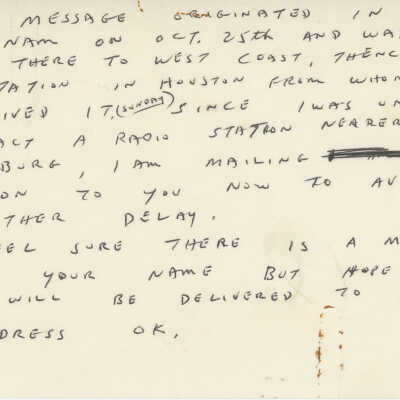 MESSAGE ORIGINATED IN
NAM ON OCT. 25th AND WA
THERE TO WEST COAST, THENC
TATION IN HOUSTON FROM WHOM
IVED IT (SUNDAY) SINCE I WAS UN
ACT A RADIO STATION NEARER
BURG, I AM MAILING
ON TO YOU NOW TO AV
THER DELAY.
EEL SURE THERE IS A M
YOUR NAME BUT HOPE
WILL BE DELIVERED TO
DRESS OK.